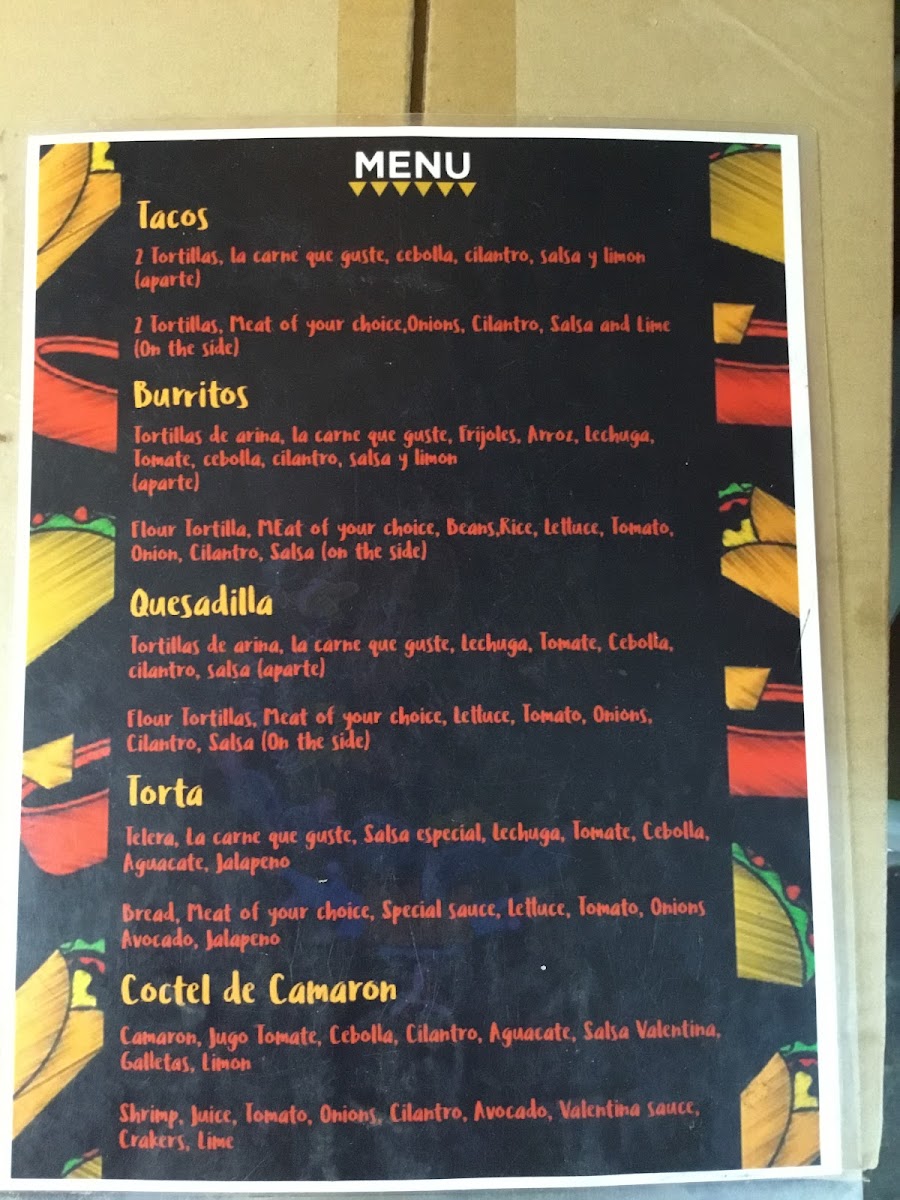 MENU
Tacos
2 Tortillas, la carne que guste, cebolla, cilantro, salsa y limon
(aparte)
2 Tortillas, Meat of your choice,Onions, Cilantro, Salsa and Lime
(On the side)
Burritos
Tortillas de arina, la carne que guste, Frijoles, Arroz, Lechuga,
Tomate, cebolla, cilantro, salsa y limon
(aparte)
Flour Tortilla, MEat of your choice, Beans,Rice, Lettuce, Tomato,
Onion, Cilantro, Salsa (on the side)
Quesadilla
Tortillas de arina, la carne que guste, Lechuga, Tomate, Cebolla,
cilantro, salsa (aparte)
Flour Tortillas, Meat of your choice, Lettuce, Tomato, Onions,
Cilantro, Salsa (On the side)
Torta
Telera, La carne que guste, Salsa especial, Lechuga, Tomate, Cebolla,
Aguacate, Jalapeno
Bread, Meat of your choice, Special sauce, Lettuce, Tomato, Onions
Avocado, Jalapeno
Coctel de Camaron
Camaron, Jugo Tomate, Cebolla, Cilantro, Aguacate, Salsa Valentina,
Galletas, Limon
Shrimp, Juice, Tomato, Onions, Cilantro, Avocado, Valentina sauce,
Crakers, Lime